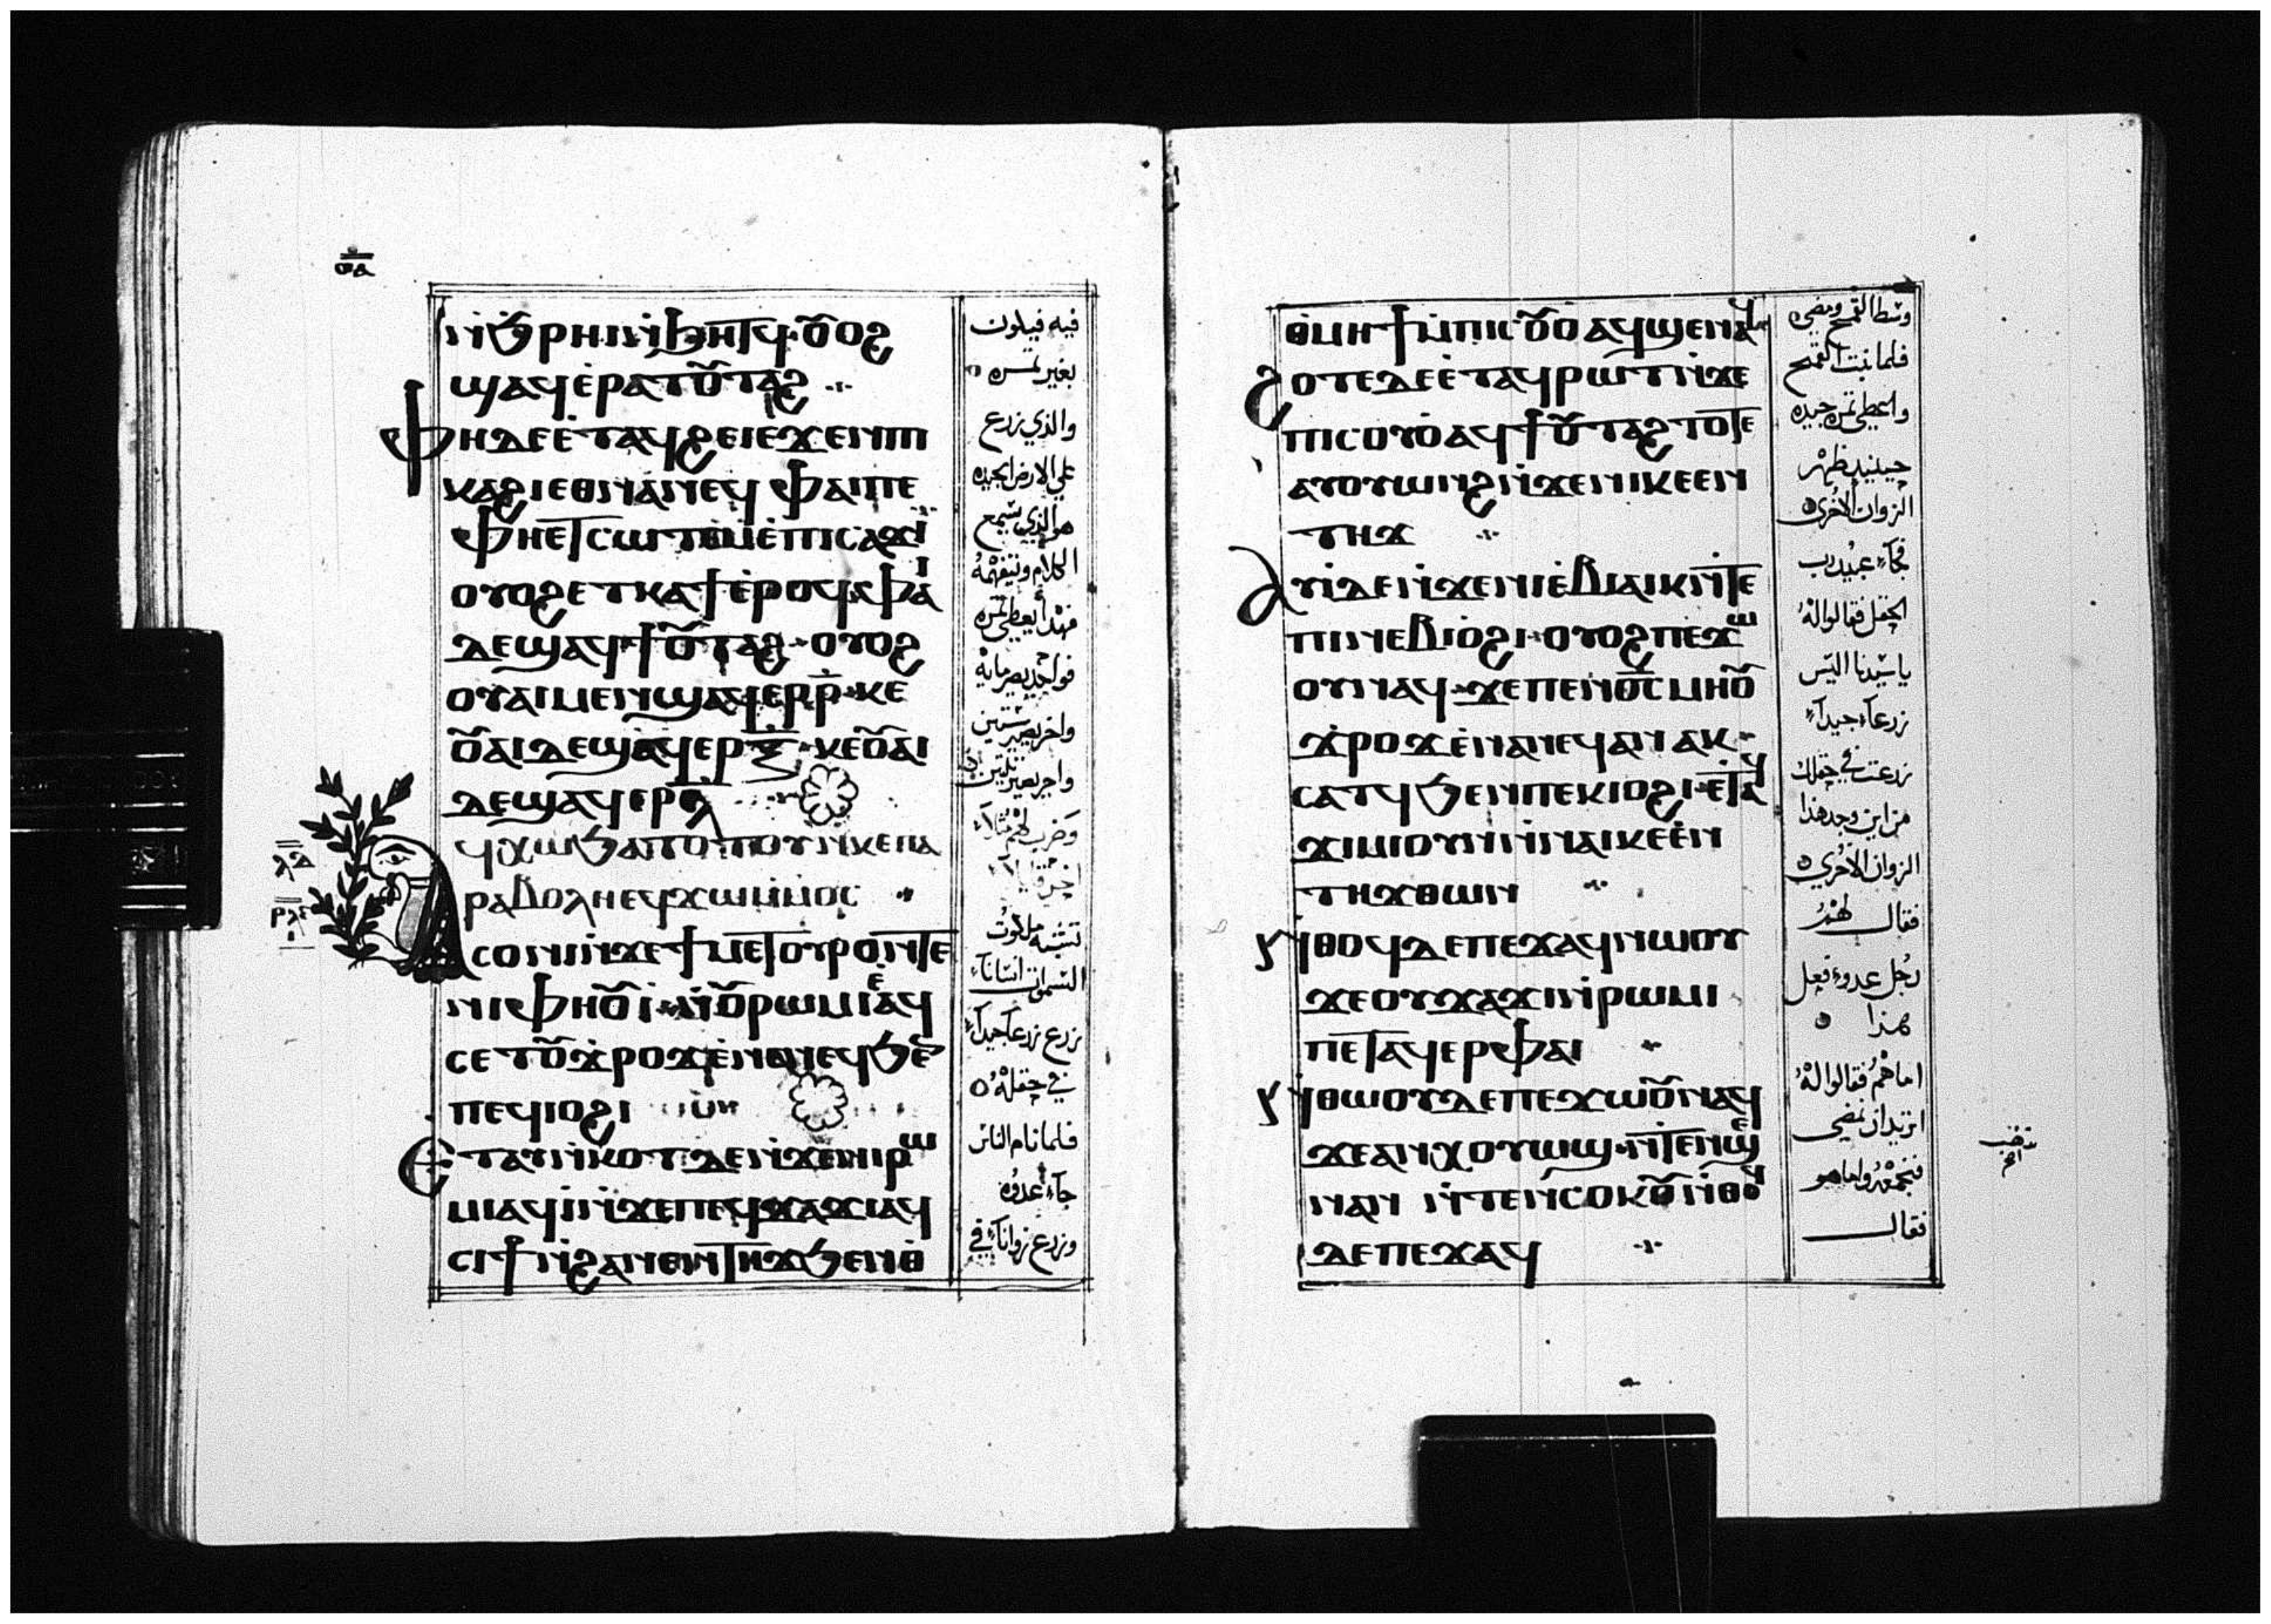 ⲟⲁ
ⲛ̀ϧⲣⲏⲓ ⲛ̀ϧⲏⲧϥ· ⲟⲩⲟϩ
ϣⲁϥⲉⲣⲁⲧⲟⲩⲧⲁϩ
ⲫⲏⲇⲉ ⲉ̀ⲧⲁϥϩⲉⲓ ⲉϫⲉⲛ ⲡⲓ
ⲕⲁϩⲓ ⲉⲑⲛⲁⲛⲉϥ ⲫⲁⲓ ⲡⲉ
ⲫⲏⲉⲧⲥⲱⲧⲉⲙ ⲉ̀ⲡⲓⲥⲁϫⲓ
ⲟⲩⲟϩ ⲉⲧⲕⲁϯ ⲉ̀ⲣⲟϥ· ⲫⲁⲓ
ⲇⲉ ϣⲁϥϯⲟⲩⲧⲁϩ· ⲟⲩⲟϩ
ⲟⲩⲁⲓ ⲙⲉⲛ ϣⲁϥⲉⲣ ⲣ̄· ⲕⲉ
ⲟⲩⲁⲓ ⲇⲉ ϣⲁϥⲉⲣ ⲝ̄· ⲕⲉⲟⲩⲁⲓ
ⲇⲉ ϣⲁϥⲉⲣ ⲗ̄
ⲁϥⲭⲱ ϧⲁⲧⲟⲧⲟⲩ ⲛ̀ⲕⲉⲡⲁ
ⲣⲁⲃⲟⲗⲏ ⲉϥϫⲱ ⲙ̀ⲙⲟⲥ
ⲁⲥⲟⲛⲓ ⲛ̀ϫⲉ ϯⲙⲉⲧⲟⲩⲣⲟ ⲛ̀ⲧⲉ
ⲛⲓⲫⲏⲟⲩⲓ̀· ⲛ̀ⲟⲩⲣⲱⲙⲓ ⲉ̀ⲁϥ
ⲥⲉⲧ ⲟⲩϫⲣⲟϫ ⲉ̀ⲛⲁⲛⲉϥ ϧⲉⲛ
ⲡⲉϥⲓⲟϩⲓ
ⲉⲧⲁⲩⲛ̀ⲕⲟⲧ ⲇⲉ ⲛ̀ϫⲉ ⲛⲓⲣⲱ
ⲙⲓ ⲁϥⲓ̀ ⲛ̀ϫⲉ ⲡⲉϥϫⲁϫⲓ ⲁϥ
ⲥⲓϯ ⲛ̀ϩⲁⲛⲉⲛⲧⲏϫ ϧⲉⲛ ⲑ
فيه فيكون
بغير ثمره
والذي زرع
على الارض الجيده
هو الذي يسمع
الكلام ويتفهمه
فهذا يعطي ثمره
فواحد يصير مايه
واخر يصير ستين
واخر يصير ثلثين
وضرب لهم مثلا
اخر قايلا
تشبه ملكوت
السموات انسانا
زرع زرعا جيدا
في حقله
فلما نام الناس
جاء عدوه
وزرع زوانا في
ⲑⲙⲏϯ ⲙ̀ⲡⲓⲥⲟⲩⲟ ⲁϥϣⲉⲛⲁϥ
ϩⲟⲧⲉ ⲇⲉ ⲉ̀ⲧⲁϥⲣⲱⲧ ⲛ̀ϫⲉ
ⲡⲓⲥⲟⲩⲟ ⲁϥϯⲟⲩⲧⲁϩ ⲧⲟⲧⲉ
ⲁⲩⲟⲩⲱⲛϩ ⲛ̀ϫⲉ ⲛⲓⲕⲉⲉⲛ
ⲧⲏϫ
ⲁⲩⲓ̀ ⲇⲉ ⲛ̀ϫⲉ ⲛⲓⲉ̀ⲃⲓⲁⲓⲕ ⲛ̀ⲧⲉ
ⲡⲓⲛⲉⲃⲓⲟϩⲓ· ⲟⲩⲟϩ ⲡⲉϫⲱ
ⲟⲩ ⲛⲁϥ· ϫⲉ ⲡⲉⲛϭⲥ ⲙⲏ ⲟⲩ
ϫⲣⲟϫ ⲉ̀ⲛⲁⲛⲉϥ ⲁⲛ ⲁⲕ
ⲥⲁⲧϥ ϧⲉⲛ ⲡⲉⲕⲓⲟϩⲓ· ⲉⲧⲁϥ
ϫⲓⲙⲓ ⲟⲩⲛ ⲛ̀ⲛⲁⲓⲕⲉⲉⲛ
ⲧⲏϫ ⲑⲱⲛ
ⲛ̀ⲑⲟϥ ⲇⲉ ⲡⲉϫⲁϥ ⲛⲱⲟⲩ
ϫⲉ ⲟⲩϫⲁϫⲓ ⲛ̀ⲣⲱⲙⲓ
ⲡⲉⲧⲁϥⲉⲣ ⲫⲁⲓ
ⲛ̀ⲑⲱⲟⲩ ⲇⲉ ⲡⲉϫⲱⲟⲩ ⲛⲁϥ
ϫⲉ ⲁⲛ ⲭⲟⲩⲱϣ· ⲛ̀ⲧⲉⲛϣⲉ
ⲛⲁⲛ ⲛ̀ⲧⲉⲛⲥⲟⲕⲟⲩ ⲛ̀ⲑⲟϥ
ⲇⲉ ⲡⲉϫⲁϥ
وسط القمح ومضى
فلما نبت القمح
واعطى ثمره جيده
حينيذ ظهر
الزوان الاخرى
فجاء عبيد رب
الحقل فقالوا له
يا سيدنا اليس
زرعا جيدا
زرعت في حقلك
من اين وجد هذا
الزوان الاخرى
فقال لهم
رجل عدو فعل
هذا
اما هم فقالوا له
اتريد ان نمضي
فنجمعه واما هو
فقال